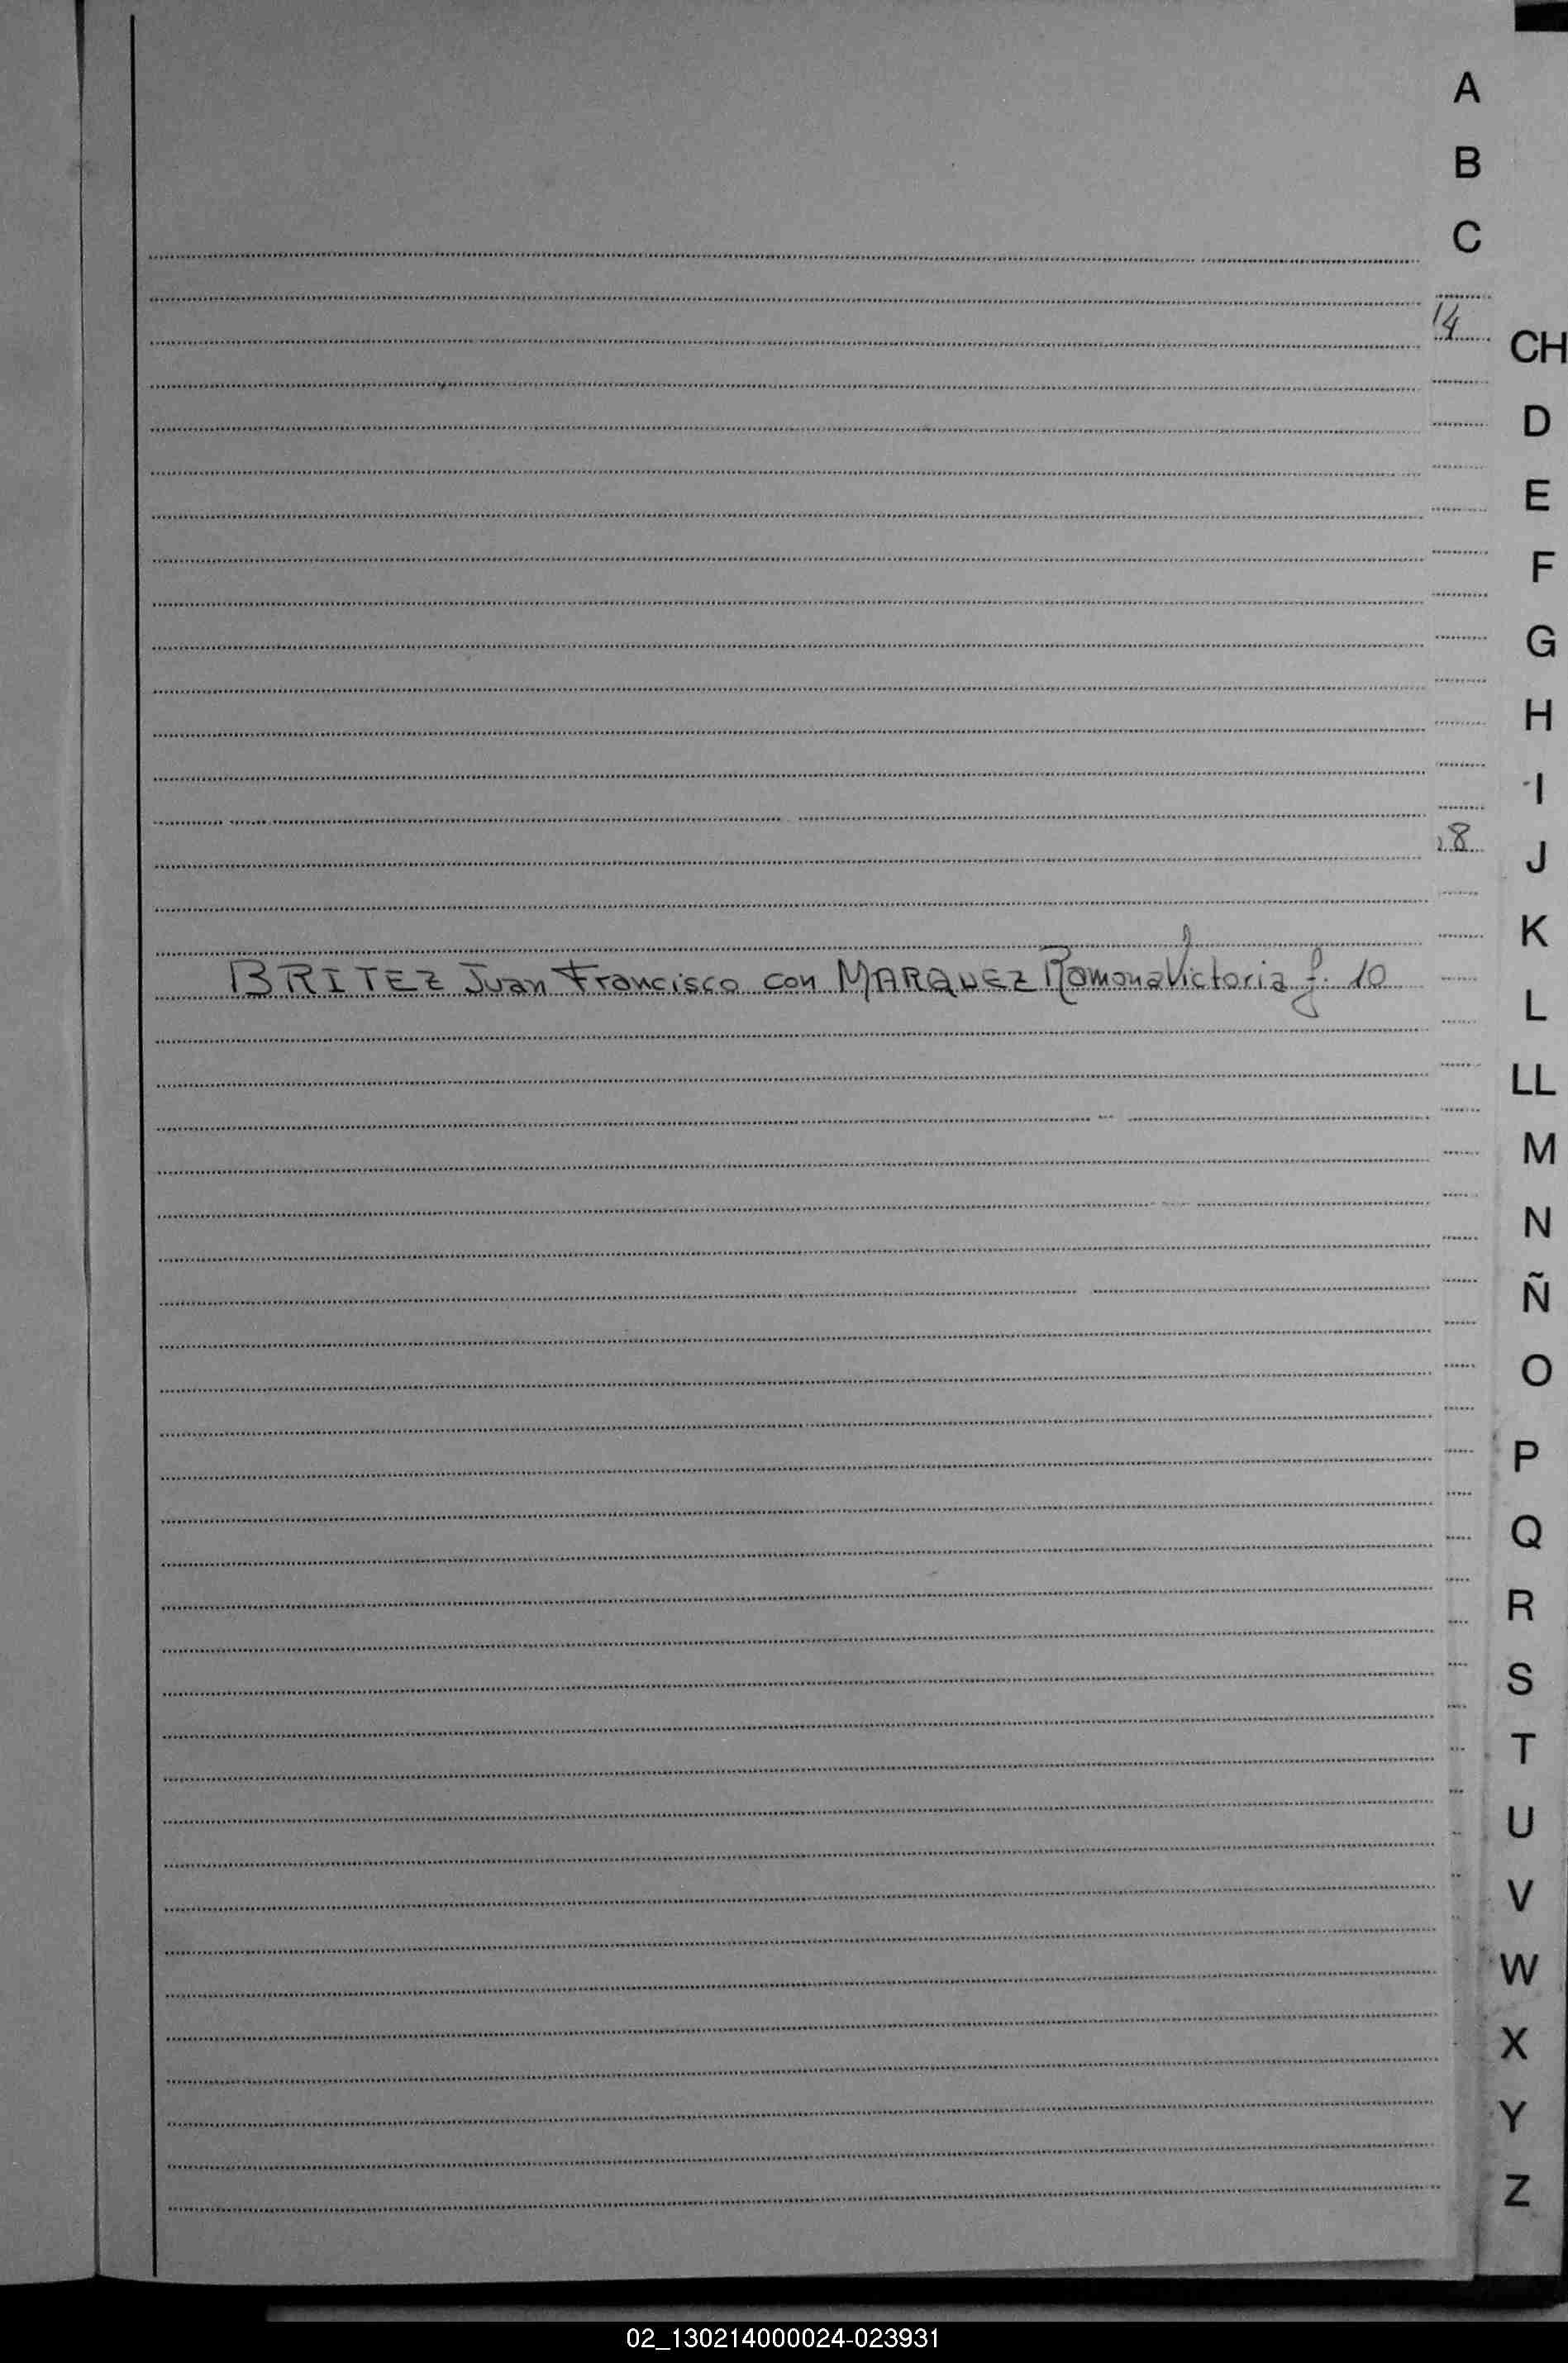 A
B
C
14
CH
D
E
F
G
H
I
8
J
K
BRITEZ Juan Francisco con MARQUEZ Ramona Victoria f. 10
L
LL
M
N
Ñ
O
P
Q
R
S
T
U
V
W
X
Y
Z
02_130214000024-023931